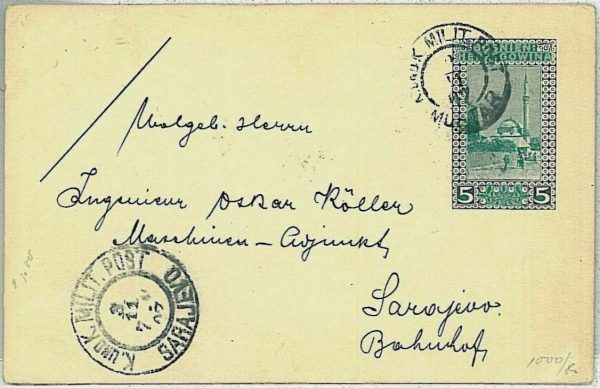 K.UND K. MILIT. POST
MOSTAR
BOSNIEN
HERCEGOVINA
5 5
Wolgeb. Herrn
Ingenieur Oskar Köller
Maschinen-Adjunkt,
Sarajevo.
Bahnhof,
K.UND K. MILIT. POST
SARAJEVO
1000/